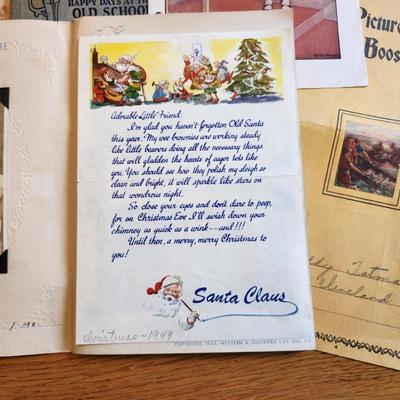 HAPPY DAYS AT THE
OLD SCHOOL
Picture
Boos
Adorable Little Friend:
I'm glad you haven't forgotten Old Santa
this year. My wee brownies are working steady
like little beavers doing all the necessary things
that will gladden the hearts of eager tots like
you. You should see how they polish my sleigh so
clean and bright, it will sparkle like stars on
that wondrous night.
So close your eyes and don't dare to peep,
for on Christmas Eve I'll swish down your
chimney as quick as a wink—and!!!
Until then, a merry, merry Christmas to
you!
Santa Claus
Christmas - 1949
COPYRIGHT, WESTERN & SOUTHERN LIFE INS. CO.
7 mo.
Cleveland